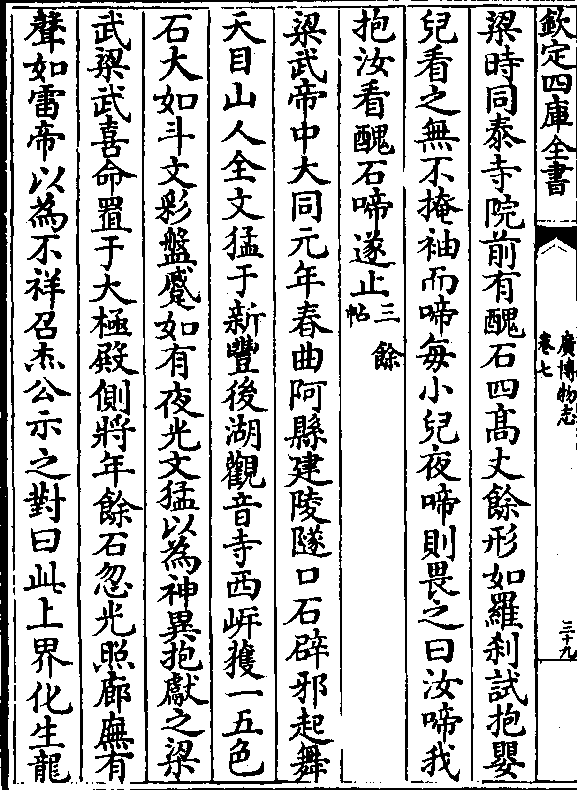 欽定四庫全書
廣博物志
卷七
三十九
梁時同泰寺院前有醜石四高丈餘形如羅刹試抱嬰
兒看之無不掩袖而啼每小兒夜啼則畏之曰汝啼我
抱汝看醜石啼遂止三餘帖
梁武帝中大同元年春曲阿縣建陵隧口石辟邪起舞
天目山人全文猛于新豐後湖觀音寺西岍獲一五色
石大如斗文彩盤蹙如有夜光文猛以為神異抱獻之梁
武梁武喜命置于大極殿側將年餘石忽光照廊廡有
聲如雷帝以為不祥召杰公示之對曰此上界化生龍